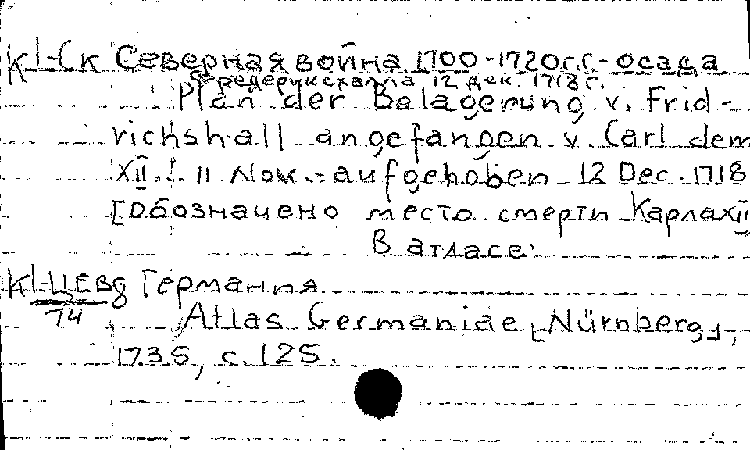 К I-Ск Северная война 1700-1720г.г.- осада
Фредериксхалла 12 дек. 1718 г.
Plan der Balagerung v. Frid-
richshall angefangen v. Carl dem
XII. 11 Nov. - aufgehoben 12 Dec. 1718
[Обозначено место смерти Карла XII
В атласе:
К I-Цевд Германия
74
Atlas Germaniae [Nürnberg],
1735, с. 125.